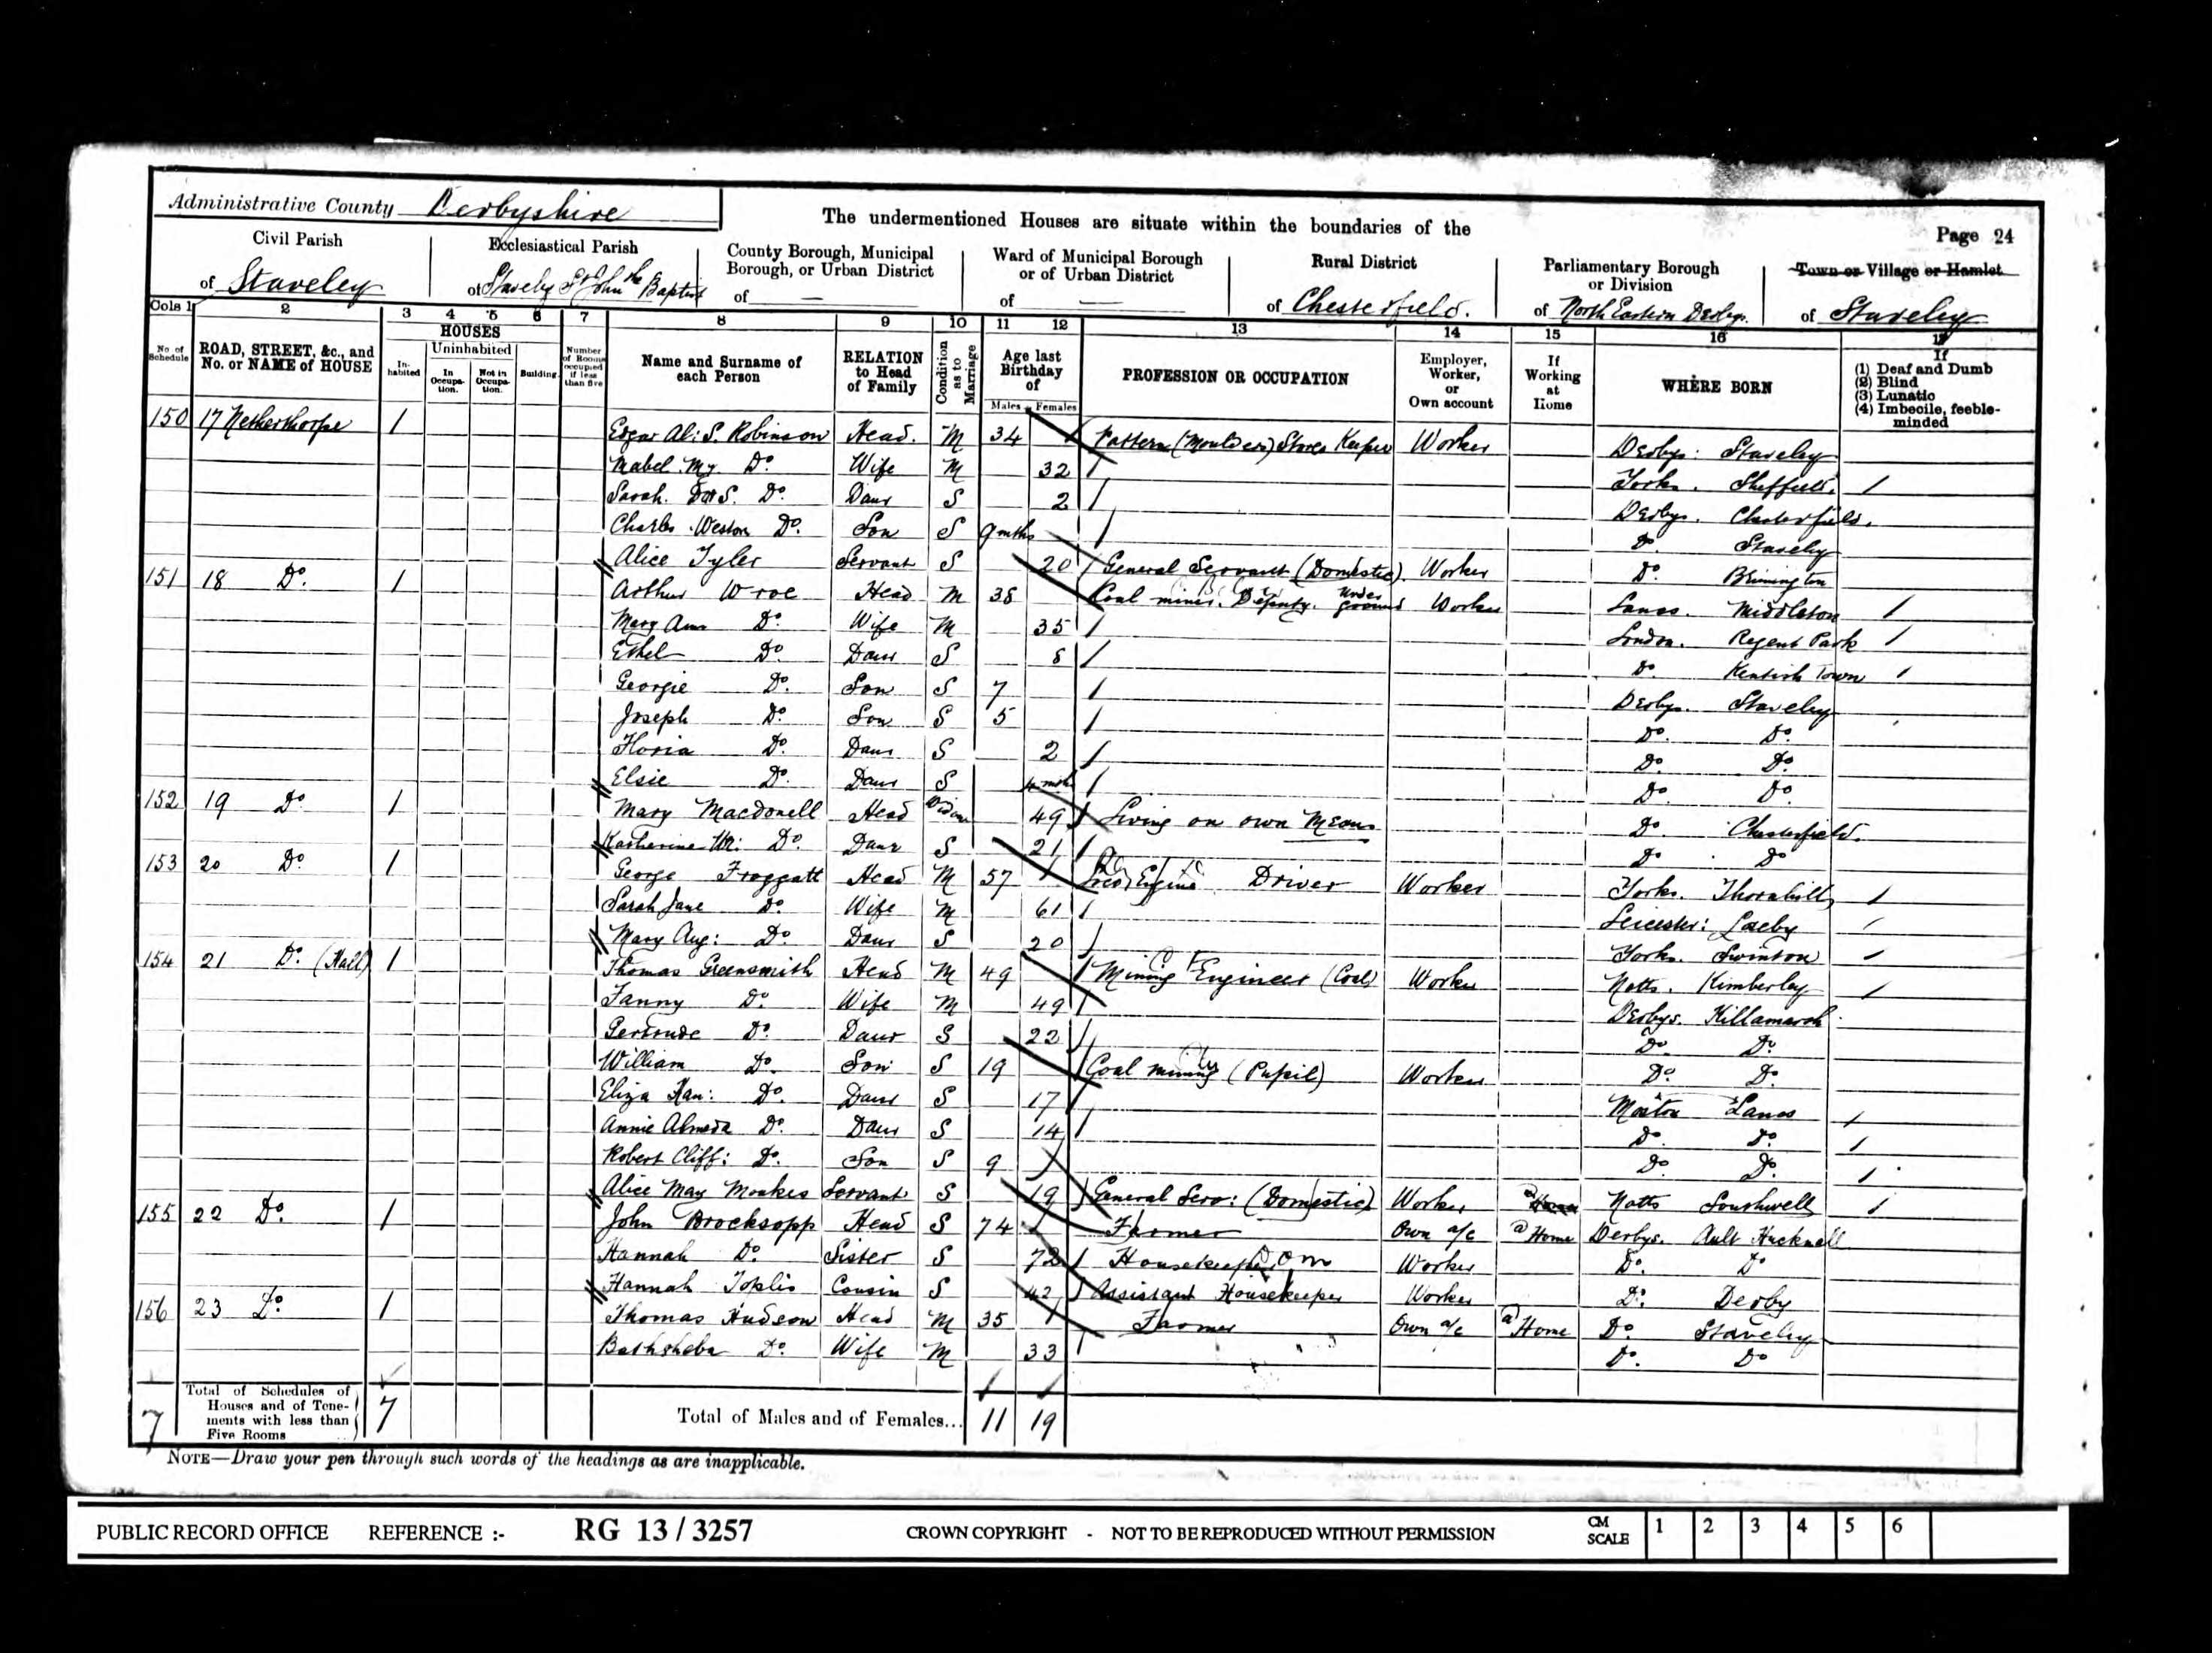 Administrative County Derbyshire
The undermentioned Houses are situate within the boundaries of the
Page 24
Civil Parish of Staveley
Ecclesiastical Parish of Stavely St John the Baptist
County Borough, Municipal Borough, or Urban District of —
Ward of Municipal Borough or of Urban District of —
Rural District of Chesterfield.
Parliamentary Borough or Division of North Eastern Derbys.
Town or Village or Hamlet of Staveley
Cols 1 2 3 4 5 6 7 8 9 10 11 12 13 14 15 16 17
No. of Schedule
ROAD, STREET, &c., and No. or NAME of HOUSE
HOUSES
Inhabited
Uninhabited
In Occupation.
Not in Occupation.
Building
Number of Rooms occupied if less than five
Name and Surname of each Person
RELATION to Head of Family
Condition as to Marriage
Age last Birthday of
Males Females
PROFESSION OR OCCUPATION
Employer, Worker, or Own account
If Working at Home
WHERE BORN
If
(1) Deaf and Dumb
(2) Blind
(3) Lunatic
(4) Imbecile, feeble-minded
150 17 Netherthorpe 1 Edgar Al: S. Robinson Head. M 34 Pattern (Moulders) Stores Keeper Worker Derbys: Staveley
Mabel My Do. Wife M 32 Yorks. Sheffield.
Sarah. S. Do. Daur S 2 Derbys. Chesterfield.
Charles Weston Do. Son S 9 mths Do. Staveley
Alice Tyler Servant S 20 General Servant (Domestic). Worker Do. Brimington
151 18 Do. 1 Arthur Wroe Head M 38 Coal miner. Deputy. Under ground Worker Lancs. Middleton
Mary Ann Do. Wife M 35 London. Regent Park
Ethel Do. Daur S 8 Do. Kentish Town
Georgie Do. Son S 7 Derbys. Staveley
Joseph Do. Son S 5 Do. Do.
Floria Do. Daur S 2 Do. Do.
Elsie Do. Daur S mth Do. Do.
152 19 Do 1 Mary Macdonell Head Widow 49 Living on own Means Do. Chesterfield.
Katherine Do. Daur S 21 Do. Do
153 20 Do. 1 George Froggatt Head M 57 Loco Engine Driver Worker Yorks. Thornhill
Sarah Jane Do. Wife M 61 Leicester:
Mary Aug: Do. Daur S 20 Yorks. Swinton
154 21 Do. (Hall) 1 Thomas Greensmith Head M 49 Mining Engineer (Coal) Worker Notts. Kimberley
Fanny Do. Wife M 49 Derbys. Killamarsh
Gertrude Do. Daur S 22 Do. Do.
William Do. Son S 19 Coal mining (Pupil) Worker Do. Do.
Eliza Han: Do. Daur S 17 Moston Lancs
Annie Almeda Do. Daur S 14 Do. Do.
Robert Cliff: Do. Son S 9 Do. Do.
Alice May Monkes Servant S 19 General Serv: (Domestic) Worker Notts Southwell
155 22 Do. 1 John Brocksopp Head S 74 Farmer Own a/c @ Home Derbys. Ault Hucknall
Hannah Do. Sister S 72 Housekeeper Dom Worker Do. Do
Hannah Toplis Cousin S 42 Assistant Housekeeper Worker Do. Derby
156 23 Do. 1 Thomas Hudson Head M 35 Farmer Own a/c @ Home Do. Staveley
Bathsheba Do. Wife M 33 Do. Do
7 Total of Schedules of Houses and of Tenements with less than Five Rooms 7 Total of Males and of Females... 11 19
NOTE—Draw your pen through such words of the headings as are inapplicable.
PUBLIC RECORD OFFICE REFERENCE :- RG 13 / 3257 CROWN COPYRIGHT - NOT TO BE REPRODUCED WITHOUT PERMISSION CM SCALE 1 2 3 4 5 6